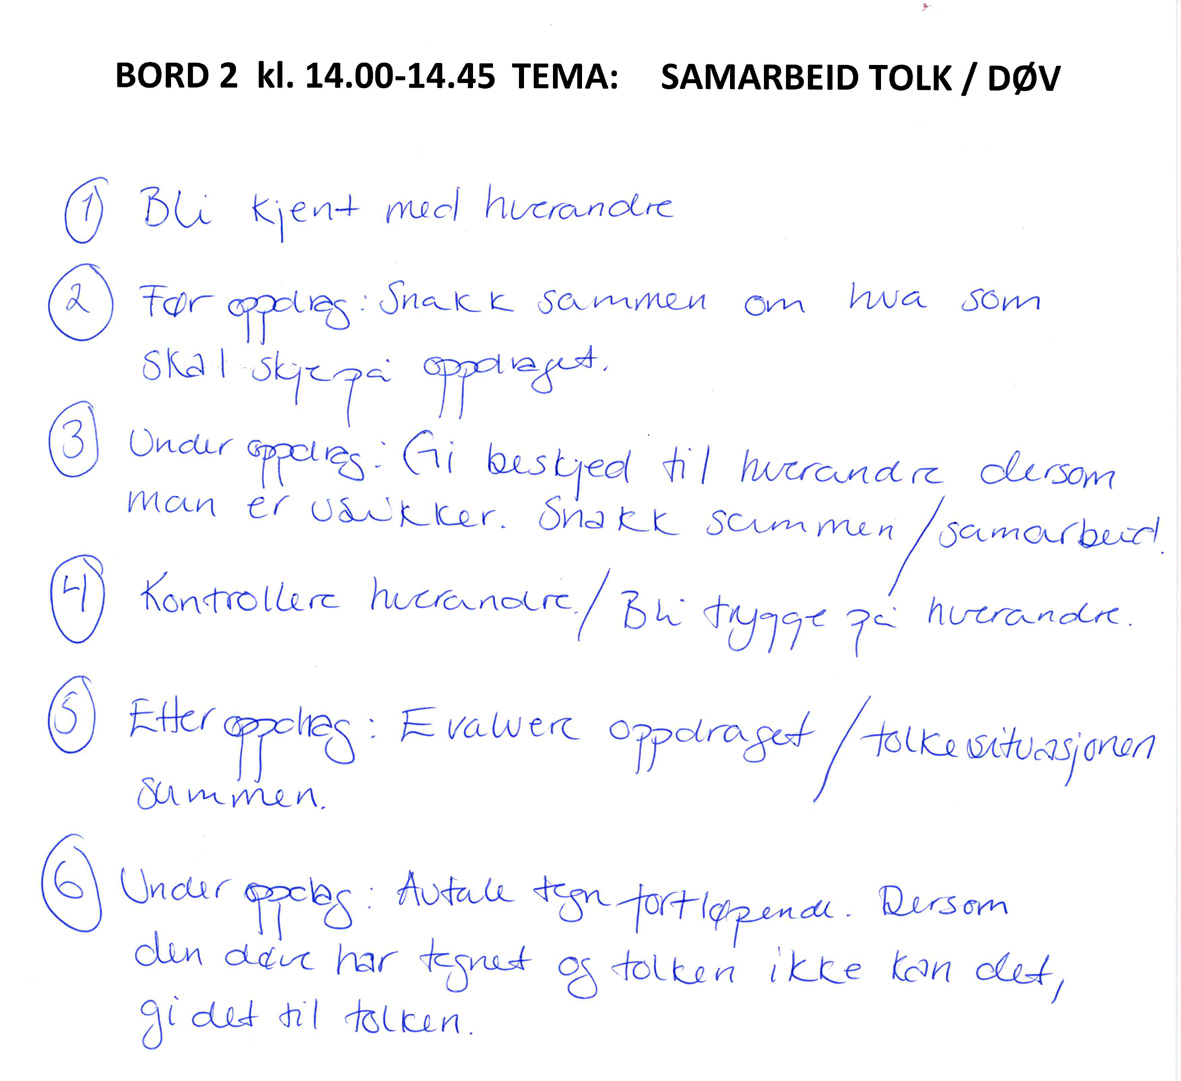 BORD 2 kl. 14.00-14.45 TEMA: SAMARBEID TOLK / DØV
① Bli kjent med hverandre
② Før oppdrag: Snakk sammen om hva som
skal skje på oppdraget.
③ Under oppdrag: Gi beskjed til hverandre dersom
man er usikker. Snakk sammen / samarbeid.
④ Kontrollere hverandre. / Bli trygge på hverandre.
⑤ Etter oppdrag: Evaluere oppdraget / tolkesituasjonen
sammen.
⑥ Under oppdrag: Avtale tegn fortløpende. Dersom
den døve har tegnet og tolken ikke kan det,
gi det til tolken.